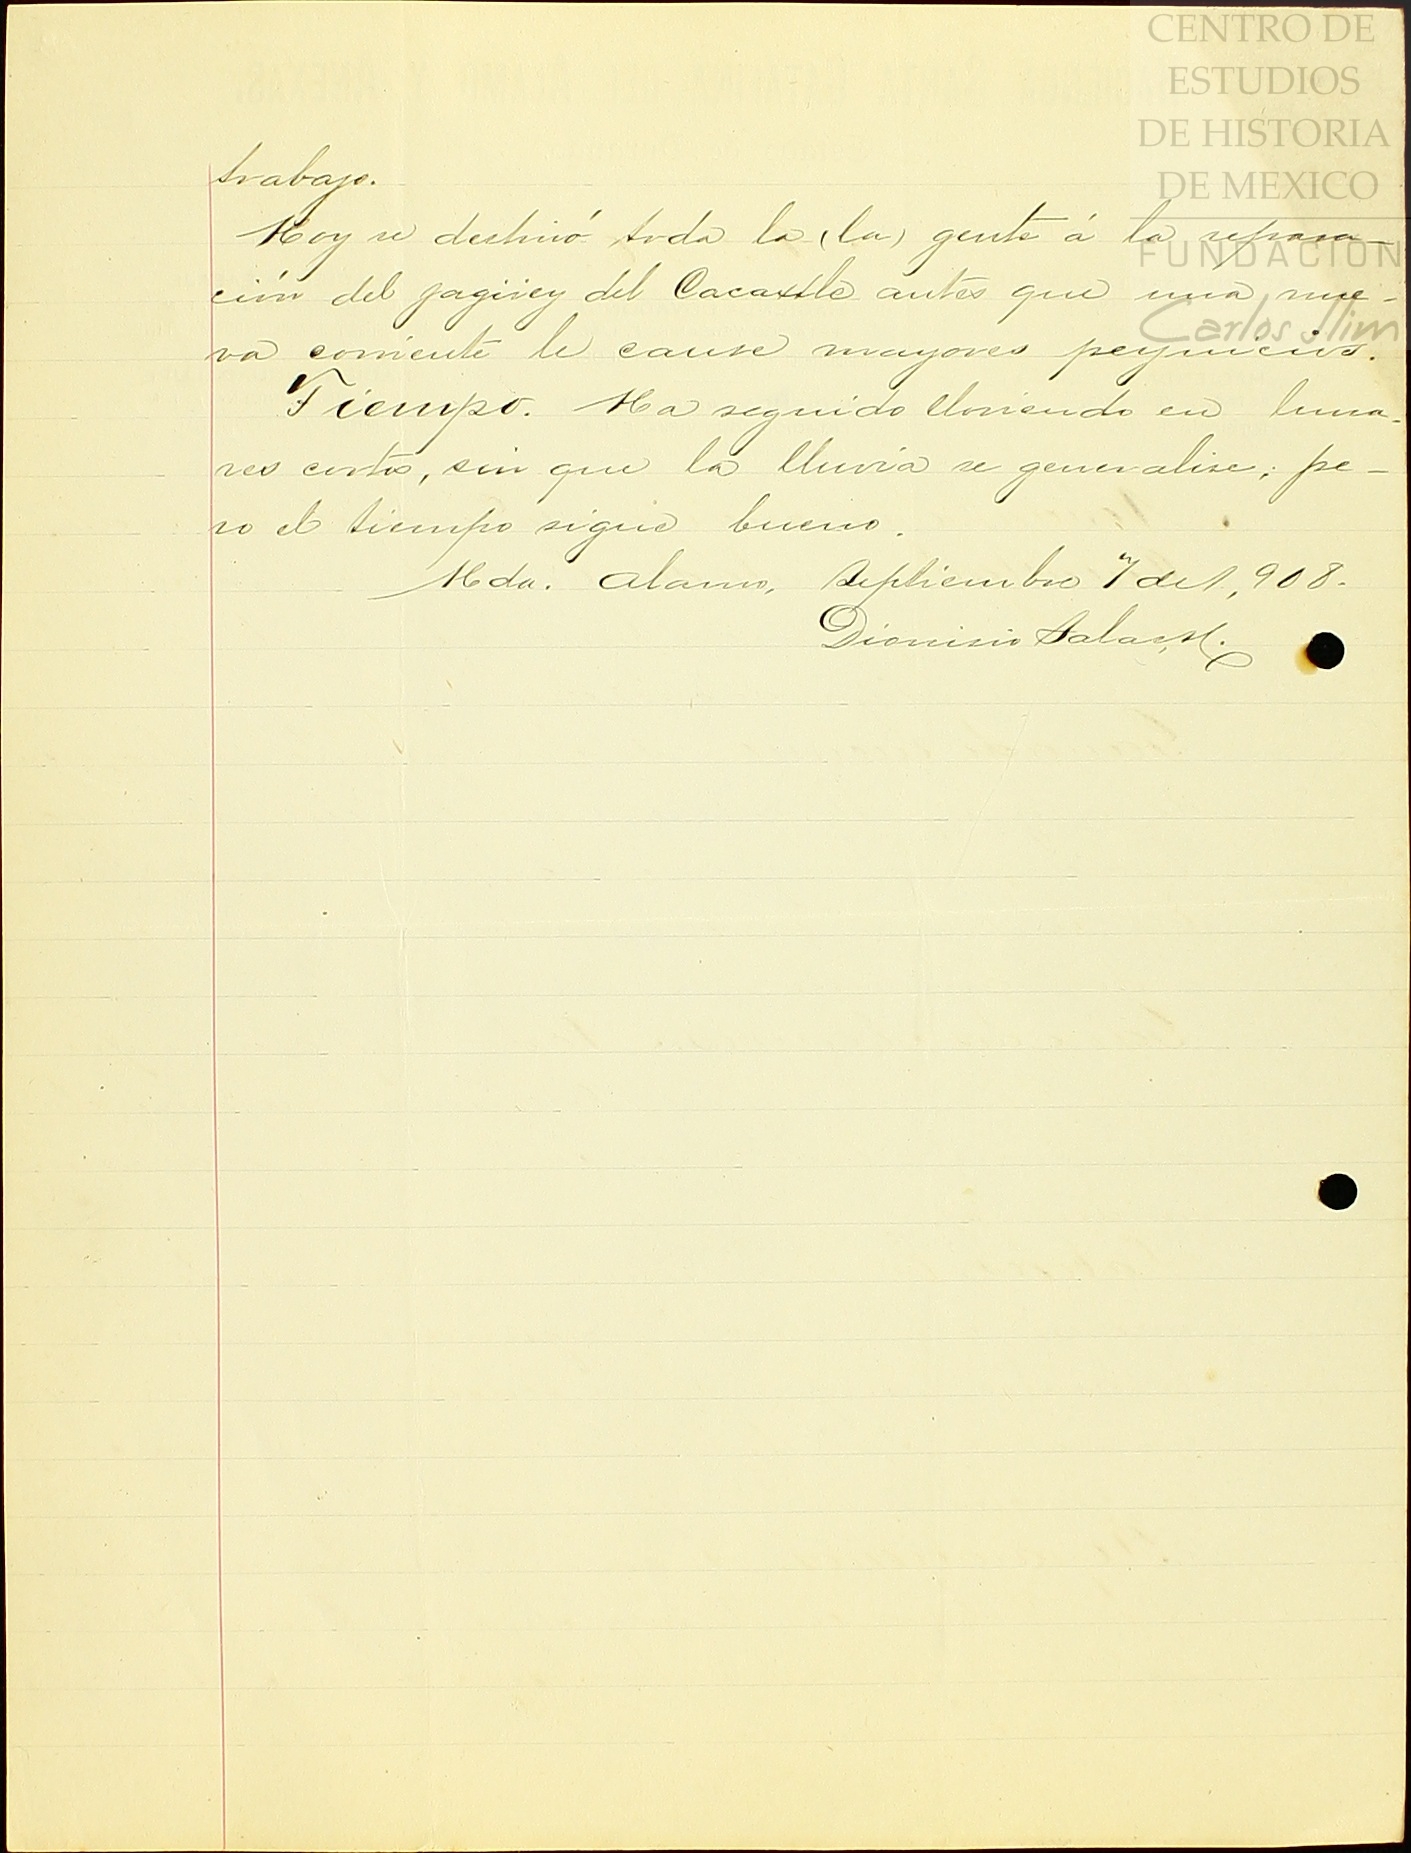 CENTRO DE
ESTUDIOS
DE HISTORIA
DE MEXICO
FUNDACION
Carlos Slim
trabajo.
Hoy se destinó toda la (la) gente á la repara-
ción del jagüey del Cacaxtle antes que una nue-
va corriente le cause mayores perjuicios.
Tiempo. Ha seguido lloviendo en luna-
res cortos, sin que la lluvia se generalise; pe-
ro el tiempo sigue bueno.
Hda. Alamo, Septiembre 7 de 1,908.
Dionisio Salas, H.